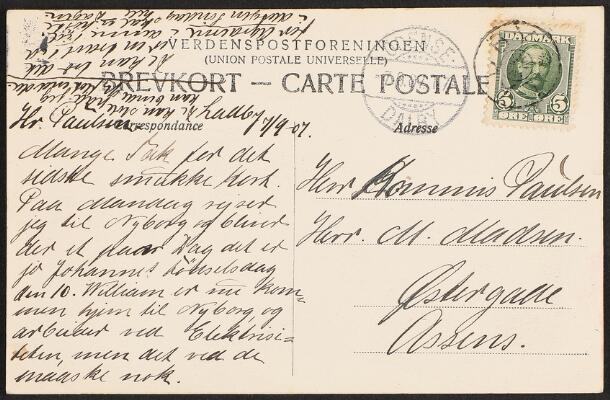 VERDENSPOSTFORENINGEN
(UNION POSTALE UNIVERSELLE)
BREVKORT — CARTE POSTALE
Correspondance
Adresse
DANMARK
5 5
ØRE ØRE
ODENSE
DALBY
Ladby 7/9 07.
Hr. Paulsen
Mange Tak for det
sidste smukke Kort.
Paa Mandag rejser
jeg til Nyborg og bliver
der et paar Dag det er
jo Johannes Fødselsdag
den 10. William er nu kom=
men hjem til Nyborg og
arbeider ved Elektrisi=
teten, men det ved de
maaske nok.
Herr Kommis Paulsen
Herr. M. Madsen.
Østergade
Assens.